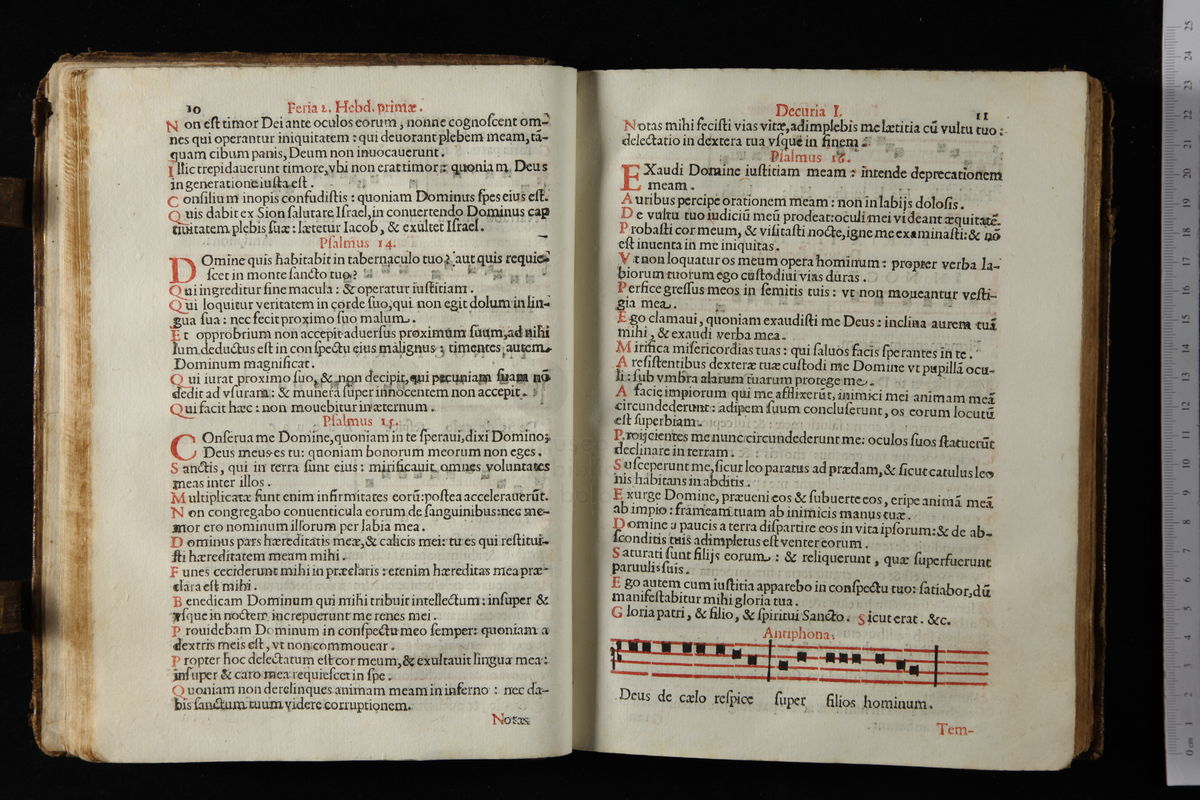 10 Feria 2. Hebd. primæ.
Non est timor Dei ante oculos eorum, nonne cognoscent om-
nes qui operantur iniquitatem: qui deuorant plebem meam, tã-
quam cibum panis, Deum non inuocauerunt.
Illic trepidauerunt timore, vbi non erat timor: quoniam Deus
in generatione iusta est.
Consilium inopis confudistis: quoniam Dominus spes eius est.
Quis dabit ex Sion salutare Israel, in conuertendo Dominus cap
tiuitatem plebis suæ: lætetur Iacob, & exultet Israel.
Psalmus 14.
DOmine quis habitabit in tabernaculo tuo? aut quis requies
scet in monte sancto tuo?
Qui ingreditur sine macula: & operatur iustitiam.
Qui loquitur veritatem in corde suo, qui non egit dolum in lin-
gua sua: nec fecit proximo suo malum.
Et opprobrium non accepit aduersus proximum suum, ad nihi
lum deductus est in conspectu eius malignus; timentes autem
Dominum magnificat.
Qui iurat proximo suo, & non decipit, qui pecuniam suam nõ
dedit ad vsuram: & munera super innocentem non accepit.
Qui facit hæc: non mouebitur in æternum.
Psalmus 15.
COnserua me Domine, quoniam in te speraui, dixi Domino;
Deus meus es tu: quoniam bonorum meorum non eges.
Sanctis, qui in terra sunt eius: mirificauit omnes voluntates
meas inter illos.
Multiplicatæ sunt enim infirmitates eorũ: postea accelerauerũt.
Non congregabo conuenticula eorum de sanguinibus: nec me-
mor ero nominum illorum per labia mea.
Dominus pars hæreditatis meæ, & calicis mei: tu es qui restitui-
sti hæreditatem meam mihi.
Funes ceciderunt mihi in præclaris: etenim hæreditas mea præ-
clara est mihi.
Benedicam Dominum qui mihi tribuit intellectum: insuper &
vsque in noctem increpuerunt me renes mei.
Prouidebam Dominum in conspectu meo semper: quoniam a
dextris meis est, vt non commouear.
Propter hoc delectatum est cor meum, & exultauit lingua mea:
insuper & caro mea requiescet in spe.
Quoniam non derelinques animam meam in inferno: nec da-
bis sanctum tuum videre corruptionem.
Notas
Decuria I. 11
Notas mihi fecisti vias vitæ, adimplebis me lætitia cũ vultu tuo:
delectatio in dextera tua vsque in finem.
Psalmus 16.
EXaudi Domine iustitiam meam: intende deprecationem
meam.
Auribus percipe orationem meam: non in labijs dolosis.
De vultu tuo iudiciũ meũ prodeat: oculi mei videant æquitatẽ.
Probasti cor meum, & visitasti nocte, igne me examinasti: & nõ
est inuenta in me iniquitas.
Vt non loquatur os meum opera hominum: propter verba la-
biorum tuorum ego custodiui vias duras.
Perfice gressus meos in semitis tuis: vt non moueantur vesti-
gia mea.
Ego clamaui, quoniam exaudisti me Deus: inclina aurem tuã
mihi, & exaudi verba mea.
Mirifica misericordias tuas: qui saluos facis sperantes in te.
A resistentibus dexteræ tuæ custodi me Domine vt pupillã ocu-
li: sub vmbra alarum tuarum protege me.
A facie impiorum qui me afflixerũt, inimici mei animam meã
circundederunt: adipem suum concluserunt, os eorum locutũ
est superbiam.
Proijcientes me nunc circundederunt me: oculos suos statuerũt
declinare in terram.
Susceperunt me, sicut leo paratus ad prædam, & sicut catulus leo
nis habitans in abditis.
Exurge Domine, præueni eos & subuerte eos, eripe animã meã
ab impio: frameam tuam ab inimicis manus tuæ.
Domine a paucis a terra dispartire eos in vita ipsorum: & de ab-
sconditis tuis adimpletus est venter eorum.
Saturati sunt filijs eorum: & reliquerunt, quæ superfuerunt
paruulis suis.
Ego autem cum iustitia apparebo in conspectu tuo: satiabor, dũ
manifestabitur mihi gloria tua.
Gloria patri, & filio, & spiritui Sancto. Sicut erat. &c.
Antiphona:
Deus de cælo respice super filios hominum.
Tem-